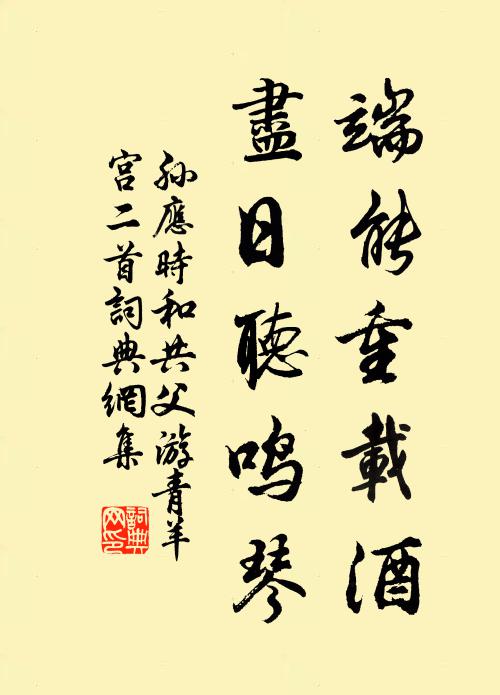 端能重載酒
盡日聽鸣琴
孫應時和共父游青羊
宫二首詞典網集
詞典
网印